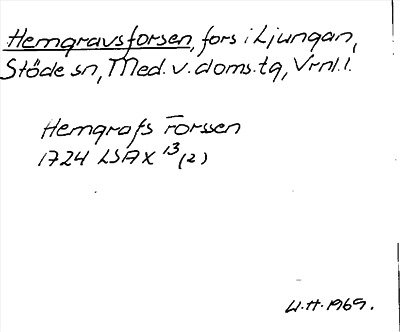 Hemgravsforsen, fors i Ljungan,
Stöde sn, Med. v. doms. tg, Vrnl. l.
Hemgrafs Forssen
1724 LSA X 13 (2)
W.H. 1969.